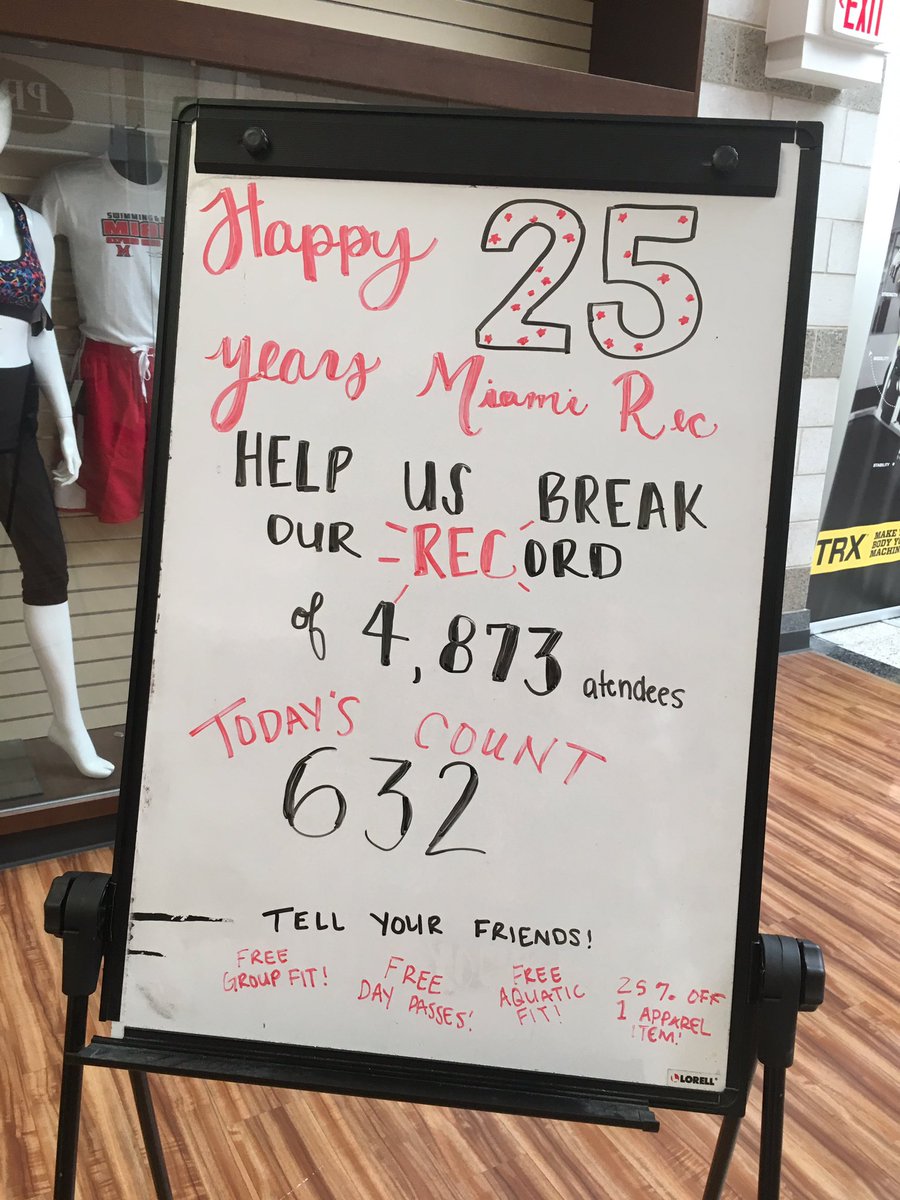 Happy 25
years Miami Rec
HELP US BREAK
OUR RECORD
of 4,873 atendees
TODAY'S COUNT
632
TELL YOUR FRIENDS!
FREE
GROUP FIT!
FREE
DAY PASSES!
FREE
AQUATIC
FIT!
25% OFF
1 APPAREL
ITEM!
LORELL
EXIT
SWIMMING &
MIA
M
TRX
MAKE
BODY YO
MACHIN
STABILITY